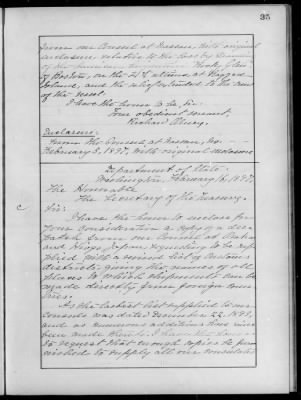 35
from our Consul at Nassau, with original
enclosure relative to the loss by
of the American
of Boston, on the at Ragged
Island, and the relief extended to the crew
of the vessel.
I have the honor to be, Sir:
Your obedient servant,
Richard Olney.
Enclosure:
From the Consul at Nassau, No.
February 5, 1897, with original enclosure
Department of State,
Washington, February 16, 1897.
The Honorable
The Secretary of the Treasury.
Sir:
I have the honor to enclose for
your consideration a copy of a des-
patch from our Consul at Osaka
and Hiogo, Japan, requesting to be sup-
plied with a revised list of Customs
districts, giving the names of all
places to which shipments can be
made directly from foreign coun-
tries.
As the latest list supplied to our
consuls was dated December 22, 189
and as numerous additions have since
been made thereto, I have the honor
to request that enough copies be fur-
nished to supply all our consulates